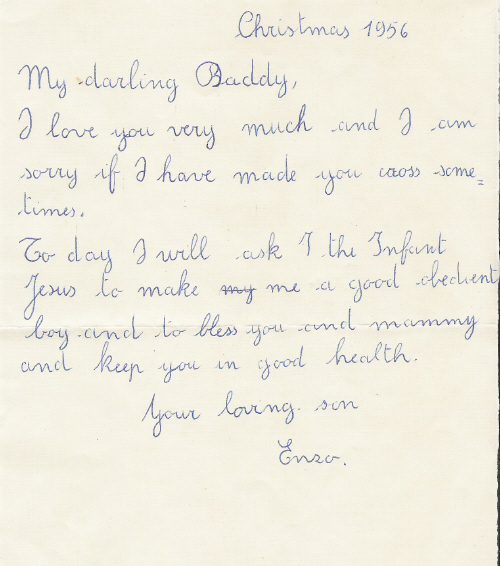 Christmas 1956
My darling Daddy,
I love you very much and I am
sorry if I have made you cross some=
times.
To day I will ask I the Infant
Jesus to make my me a good obedient
boy and to bless you and mammy
and keep you in good health.
Your loving son
Enzo.